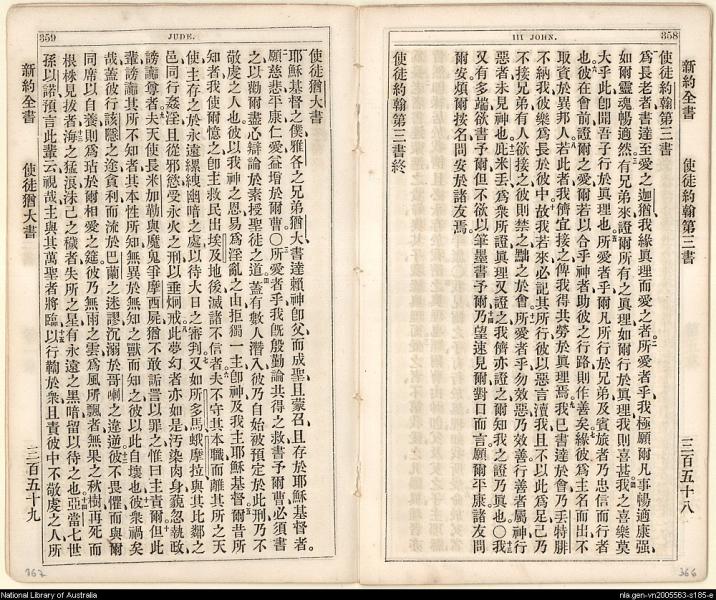 III JOHN.
358
新約全書 使徒約翰第三書 三百五十八
使徒約翰第三書
爲長老者書達至愛之迦猶我緣眞理而愛之者所愛者乎我極願爾凡事暢適康强
如爾靈魂暢適然有兄弟來證爾所有之眞理如爾行於眞理我則喜甚我之喜樂莫
大乎此卽聞吾子行於眞理也所愛者乎爾凡所行於兄弟及賓旅者乃忠信而行者
也彼在會前證爾之愛爾若以合乎神者助彼之行路則作善矣緣彼爲主名而出不
取資於異邦人若此者我儕宜接之俾我得共勞於眞理焉我已書達於會乃丟特腓
不納我彼樂爲長於彼中故我若來必記其所行彼以惡言瀆我且不以此爲足己乃
不接兄弟有人欲接之彼則禁之黜之於會所愛者乎勿效惡乃效善行善者屬神行
惡者未見神也底米丟爲衆所證眞理又證之我儕亦證之爾知我之證乃眞也○我
又有多端欲書予爾但不欲以筆墨書予爾乃望速見爾對口而言願爾平康諸友問
爾安煩爾按名問安於諸友焉
使徒約翰第三書終
366
359
JUDE.
使徒猶大書
耶穌基督之僕雅各之兄弟猶大書達賴神卽父而成聖且蒙召且存於耶穌基督者
願慈悲平康仁愛益增於爾曹○所愛者乎我旣殷勤論共得之救書予爾曹必須書
之以勸爾盡心辯論於素授聖徒之道蓋有數人潛入彼乃自始被預定於此刑乃不
敬虔之人也彼以我神之恩易爲淫亂之由拒獨一主卽神及我主耶穌基督爾昔所
知者我使爾憶之卽主救民出埃及地後滅諸不信者夫不守其本職而離其所之天
使主存之於永遠縲絏幽暗之處以待大日之審判又如所多馬蛾摩拉與其比鄰之
邑同行姦淫且從邪慾受永火之刑以垂炯戒此夢幻者亦如是汚染肉身藐忽執政
謗讟尊者夫天使長米加勒與魔鬼爭摩西屍猶不敢詬詈以罪之惟曰主責爾但此
輩謗讟其所不知者其本性所知無異於無知之獸而知之彼以此自壞也彼衆禍矣
哉蓋彼行該隱之途貪利而流於巴蘭之迷謬沉溺於哥喇之違逆彼不畏懼而與爾
同席以自養則爲玷於爾相愛之筵彼乃無雨之雲爲風所飄者無果之秋樹再死而
根株見拔者海之猛浪沫己之穢者失所之星有永遠之黑暗留以待之也亞當七世
孫以諾預言此輩云視哉主與其萬聖者將臨以行鞫於衆且責彼中不敬虔之人所
新約全書 使徒猶大書 三百五十九
367
National Library of Australia
nla.gen-vn2005563-s185-e